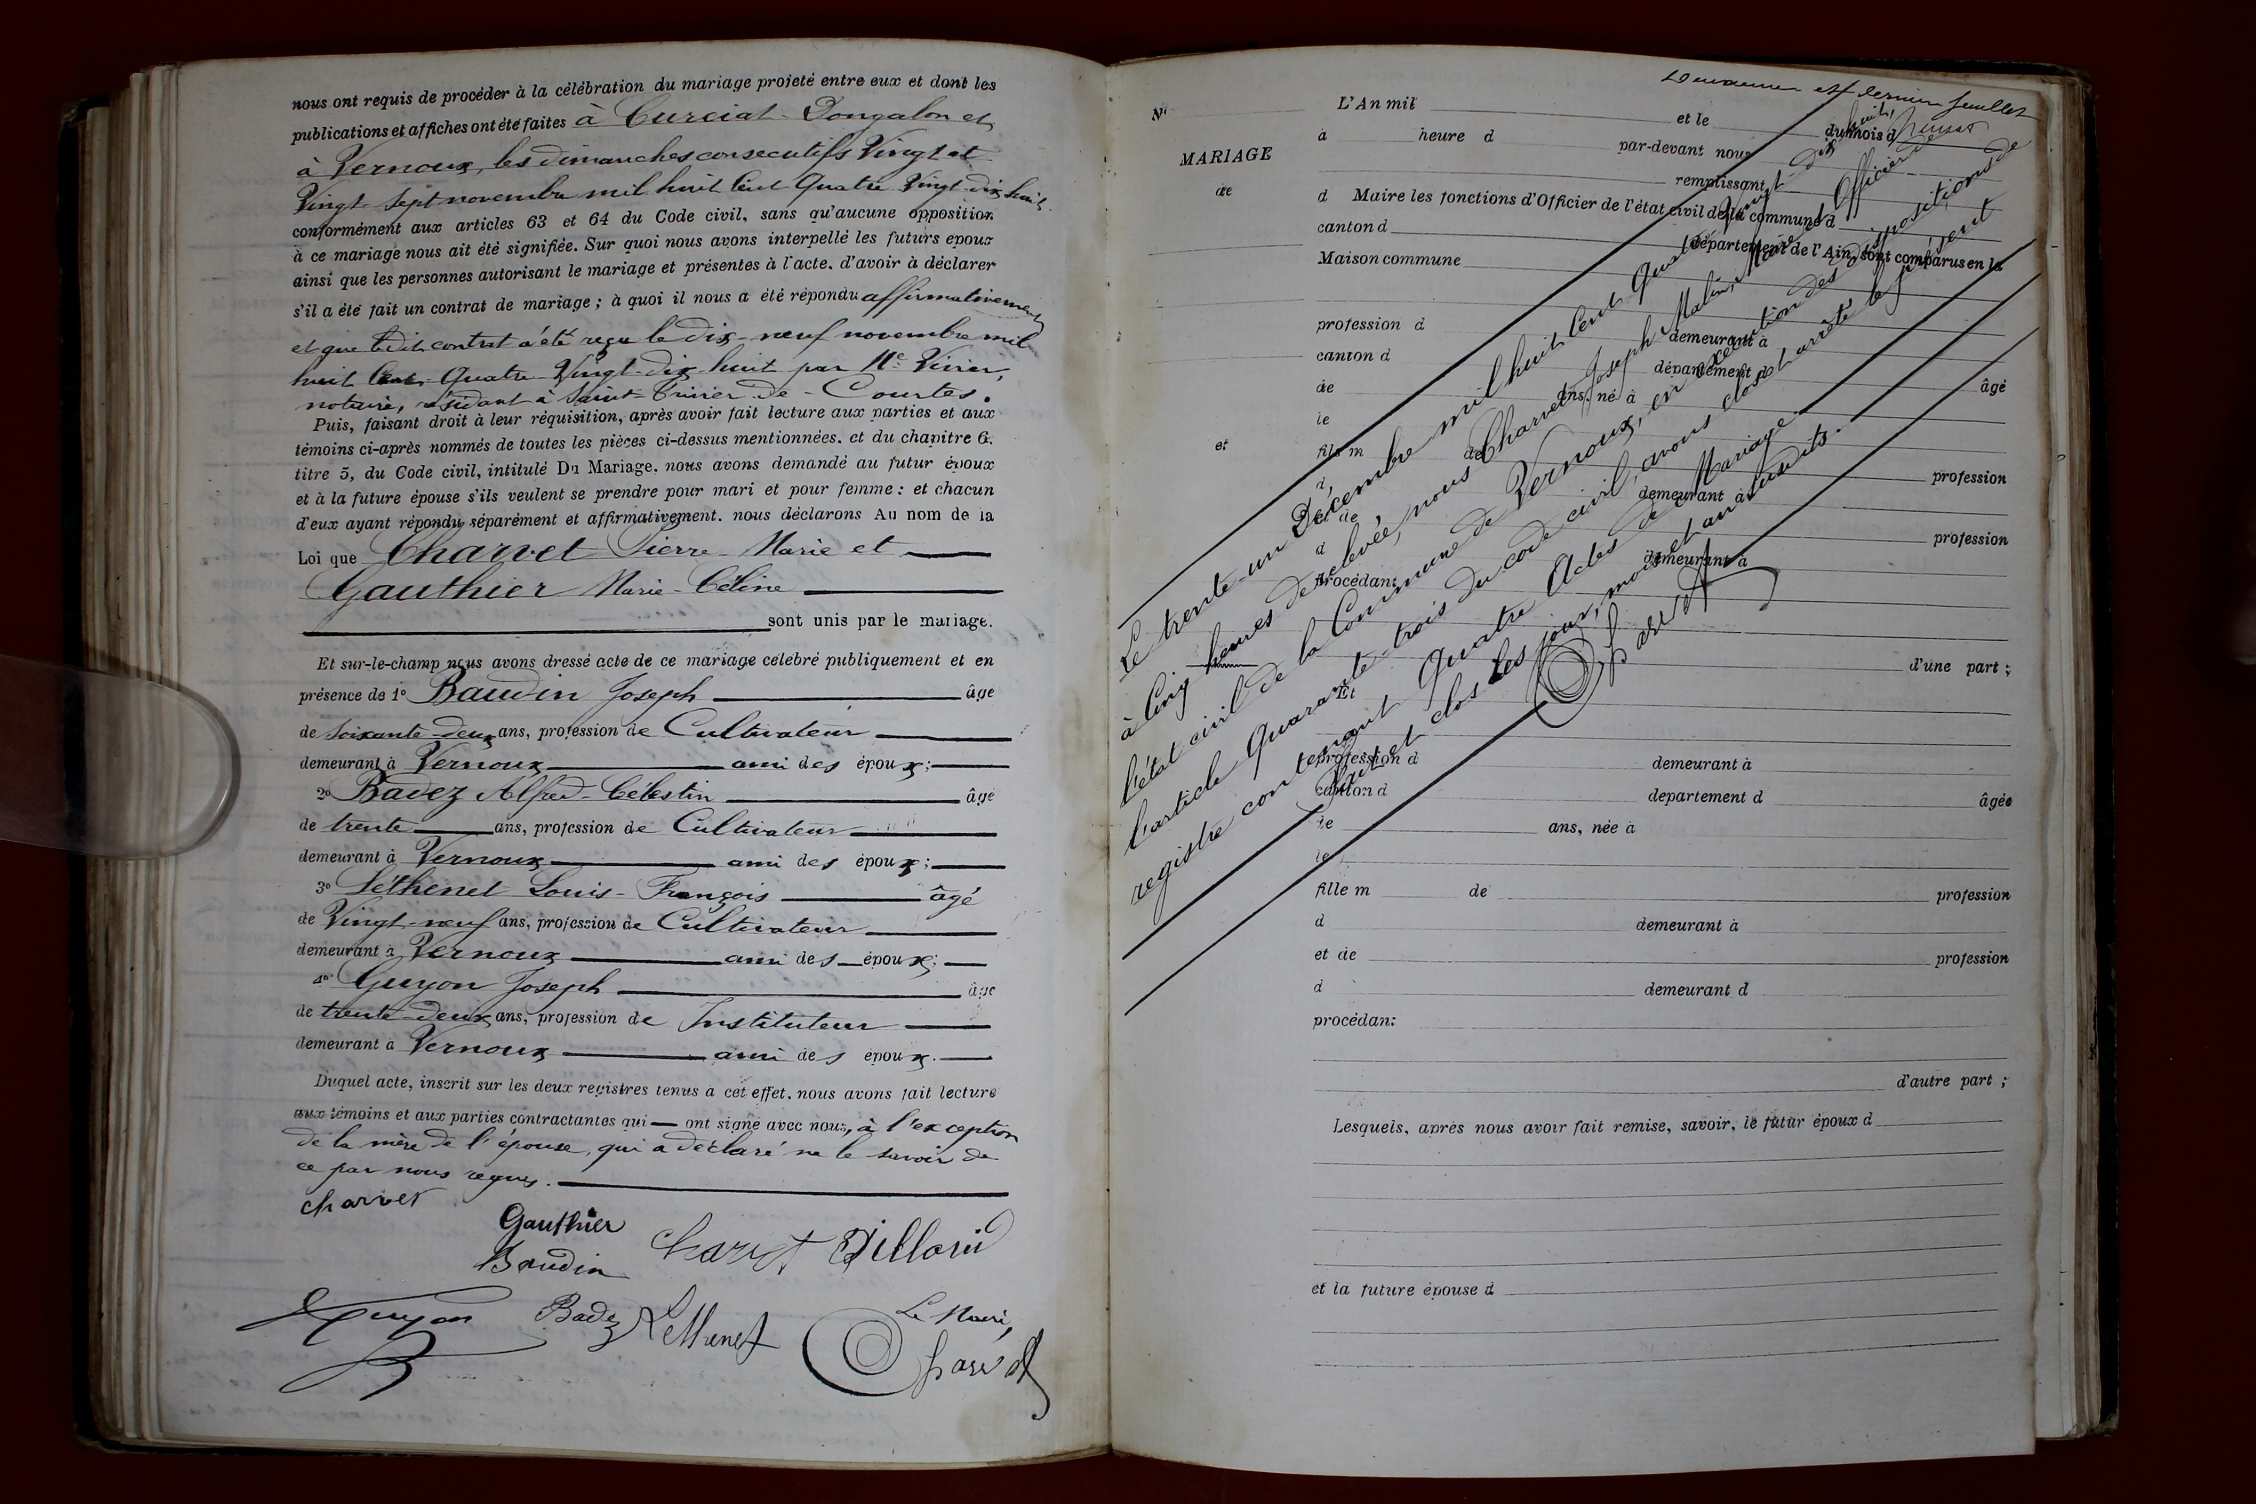 nous ont requis de procéder à la célébration du mariage projeté entre eux et dont les
publications et affiches ont été faites à Curciat-Dongalon et
à Vernoux, les dimanches consecutifs Vingt et
Vingt-sept novembre mil huit Cent Quatre-Vingt-dix-huit
conformément aux articles 63 et 64 du Code civil, sans qu'aucune opposition
à ce mariage nous ait été signifiée. Sur quoi nous avons interpellé les futurs époux
ainsi que les personnes autorisant le mariage et présentes à l'acte, d'avoir à déclarer
s'il a été fait un contrat de mariage ; à quoi il nous a été répondu affirmativement
et que ledit contrat a été reçu le dix-neuf novembre mil
huit Cent Quatre-Vingt-dix-huit par Me Vivier,
notaire, résidant à Saint-Trivier-de-Courtes.
Puis, faisant droit à leur réquisition, après avoir fait lecture aux parties et aux
témoins ci-après nommés de toutes les pièces ci-dessus mentionnées, et du chapitre 6,
titre 5, du Code civil, intitulé Du Mariage, nous avons demandé au futur époux
et à la future épouse s'ils veulent se prendre pour mari et pour femme : et chacun
d'eux ayant répondu séparément et affirmativement, nous déclarons Au nom de la
Loi que Charvet Pierre-Marie et
Gauthier Marie-Céline
sont unis par le mariage.
Et sur-le-champ nous avons dressé acte de ce mariage célébré publiquement et en
présence de 1o Baudin Joseph âgé
de soixante-deux ans, profession de Cultivateur
demeurant à Vernoux ami des époux ;
2o Badez Alfred-Célestin âgé
de trente ans, profession de Cultivateur
demeurant à Vernoux ami des époux ;
3o Léthenet Louis-François âgé
de Vingt-neuf ans, profession de Cultivateur
demeurant à Vernoux ami des époux ;
4o Guyon Joseph âgé
de trente-deux ans, profession de Instituteur
demeurant à Vernoux ami des époux.
Duquel acte, inscrit sur les deux registres tenus à cet effet, nous avons fait lecture
aux témoins et aux parties contractantes qui ont signé avec nous, à l'exception
de la mère de l'épouse, qui a déclaré ne le savoir de
ce par nous requis.
Charvet
Gauthier
Charvet Dillarid
Baudin
Guyon Badez Lethenet
Le Maire,
Charvet
et dernier feuillet
No
L'An mil et le du mois d
à heure d par-devant nous
MARIAGE
remplissant
de
d Maire les fonctions d'Officier de l'état civil de la commune d
canton d département de l'Ain, sont comparus en la
Maison commune
profession d demeurant à
canton d département d
de ans, né à âgé
le
et
fils m de profession
d demeurant à
et de profession
d demeurant à
procédant
d'une part ;
Et
profession d demeurant à
canton d département d âgée
de ans, née à
le
fille m de profession
d demeurant à
et de profession
d demeurant d
procédant
d'autre part ;
Lesquels, après nous avoir fait remise, savoir, le futur époux d
et la future épouse d
Le trente-un Décembre mil huit Cent Quatre-Vingt-dix-huit,
à Cinq heures de relevée, nous Charvet Joseph Marie, Maire et Officier de
l'état civil de la Commune de Vernoux, en exécution des dispositions de
l'article Quarante-trois du code civil, avons clos et arrêté le présent
registre contenant Quatre Actes de Mariage
Fait et clos les jour, mois et an susdits.
Charvet